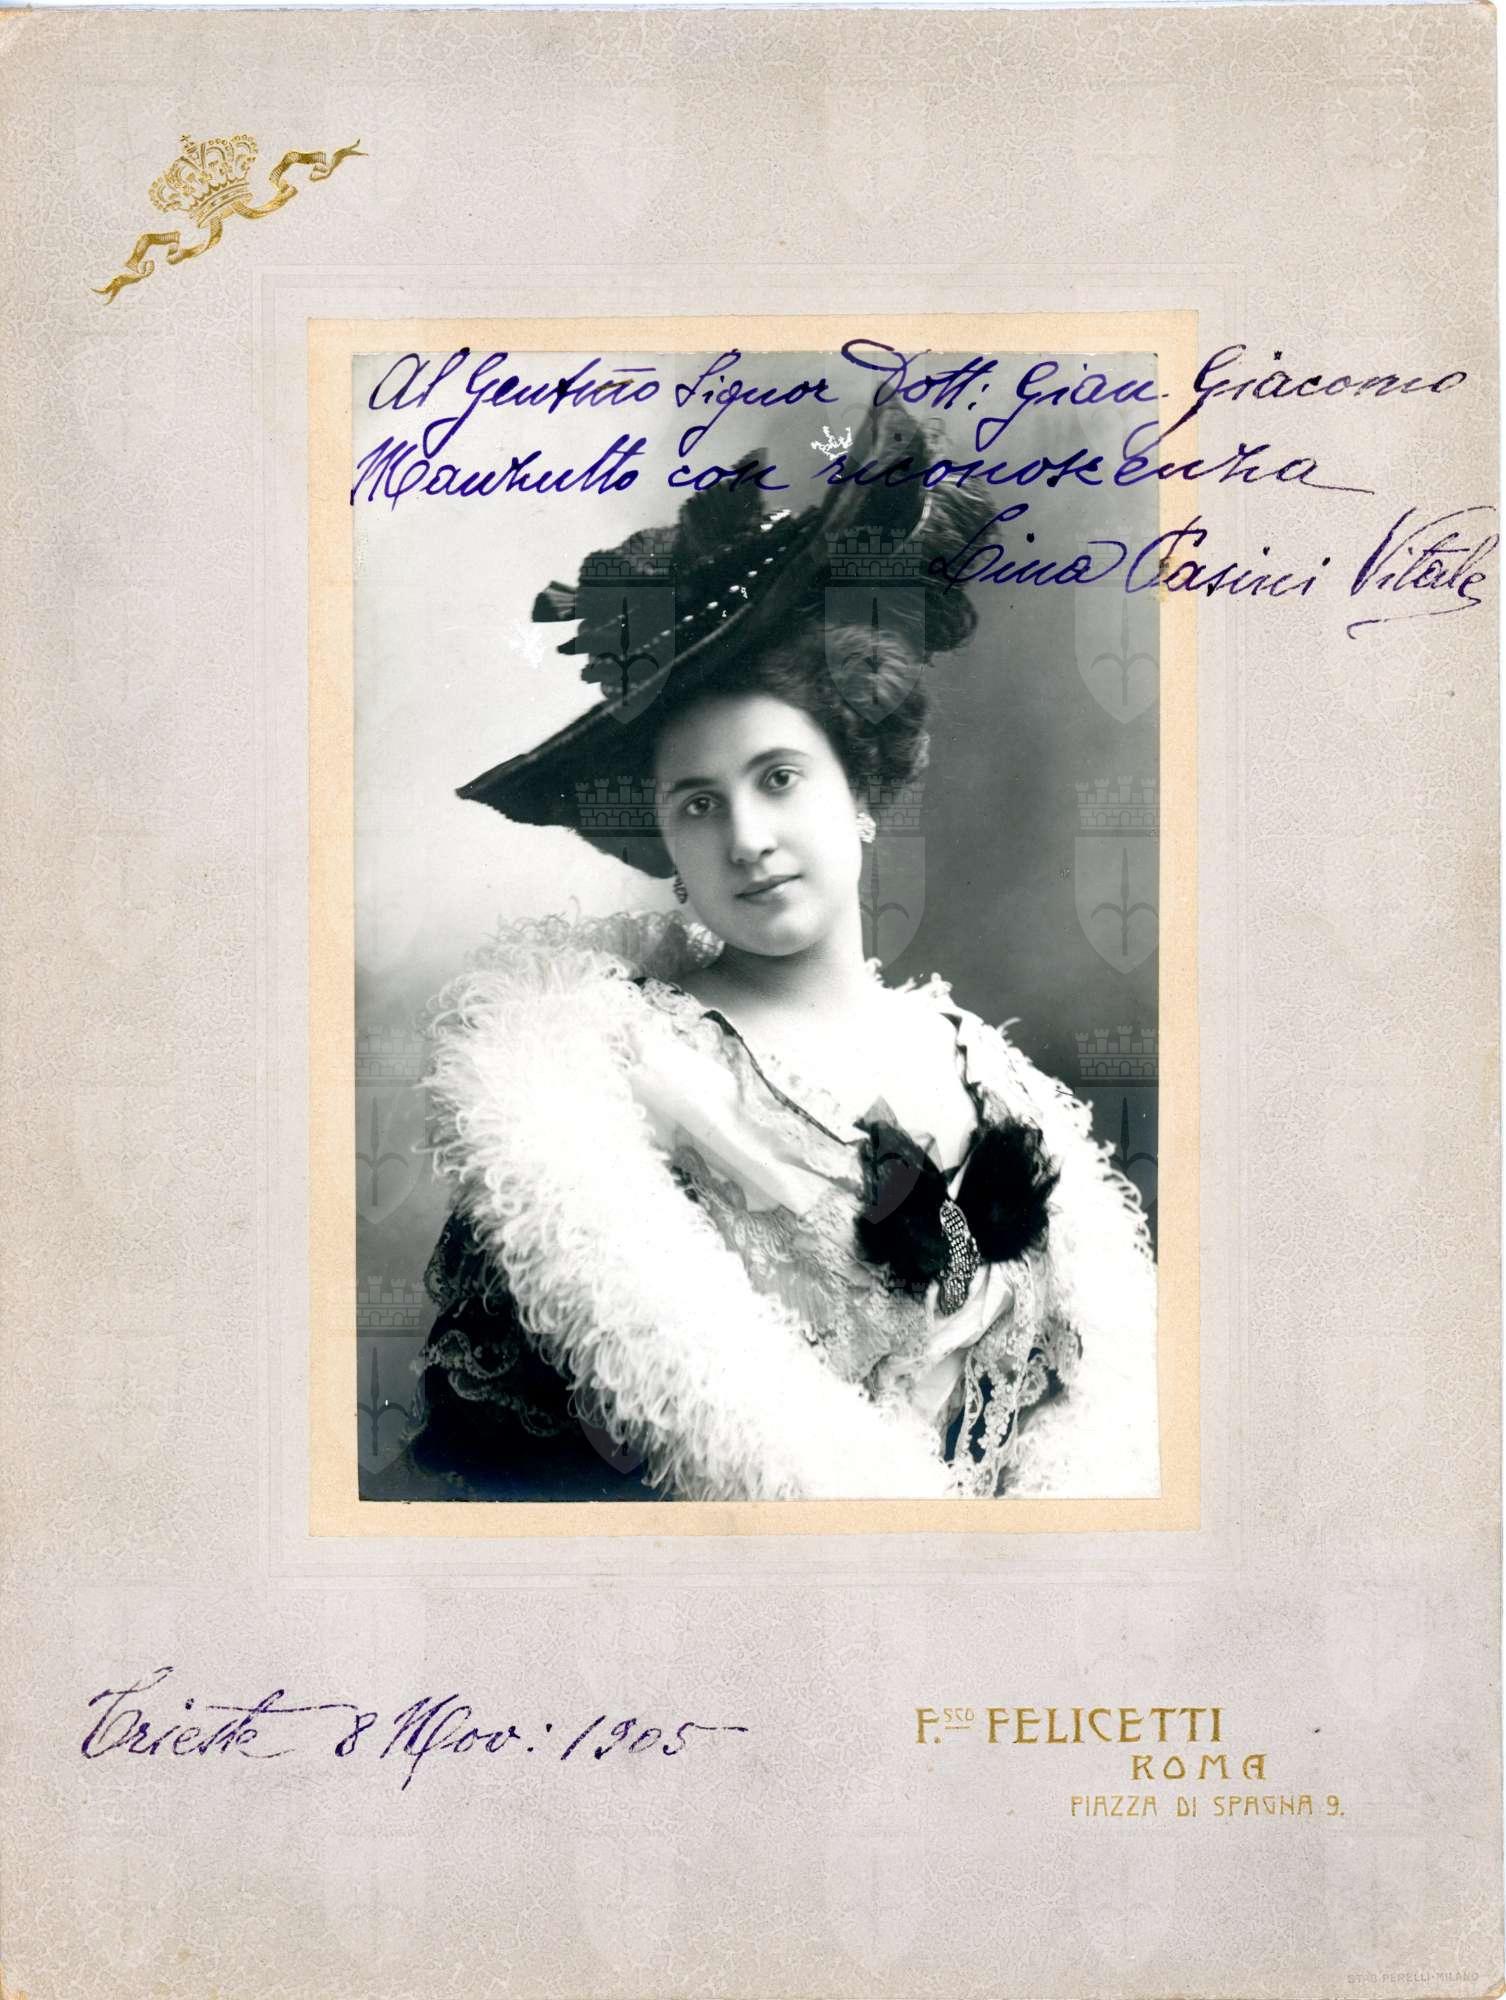 Al Gentmo Signor Dott: Gian. Giacomo
Manzutto con riconoscenza
Lina Pasini Vitale
Trieste 8 Nov: 1905
F.sco FELICETTI
ROMA
PIAZZA DI SPAGNA 9.
ST-O PERELLI-MILANO